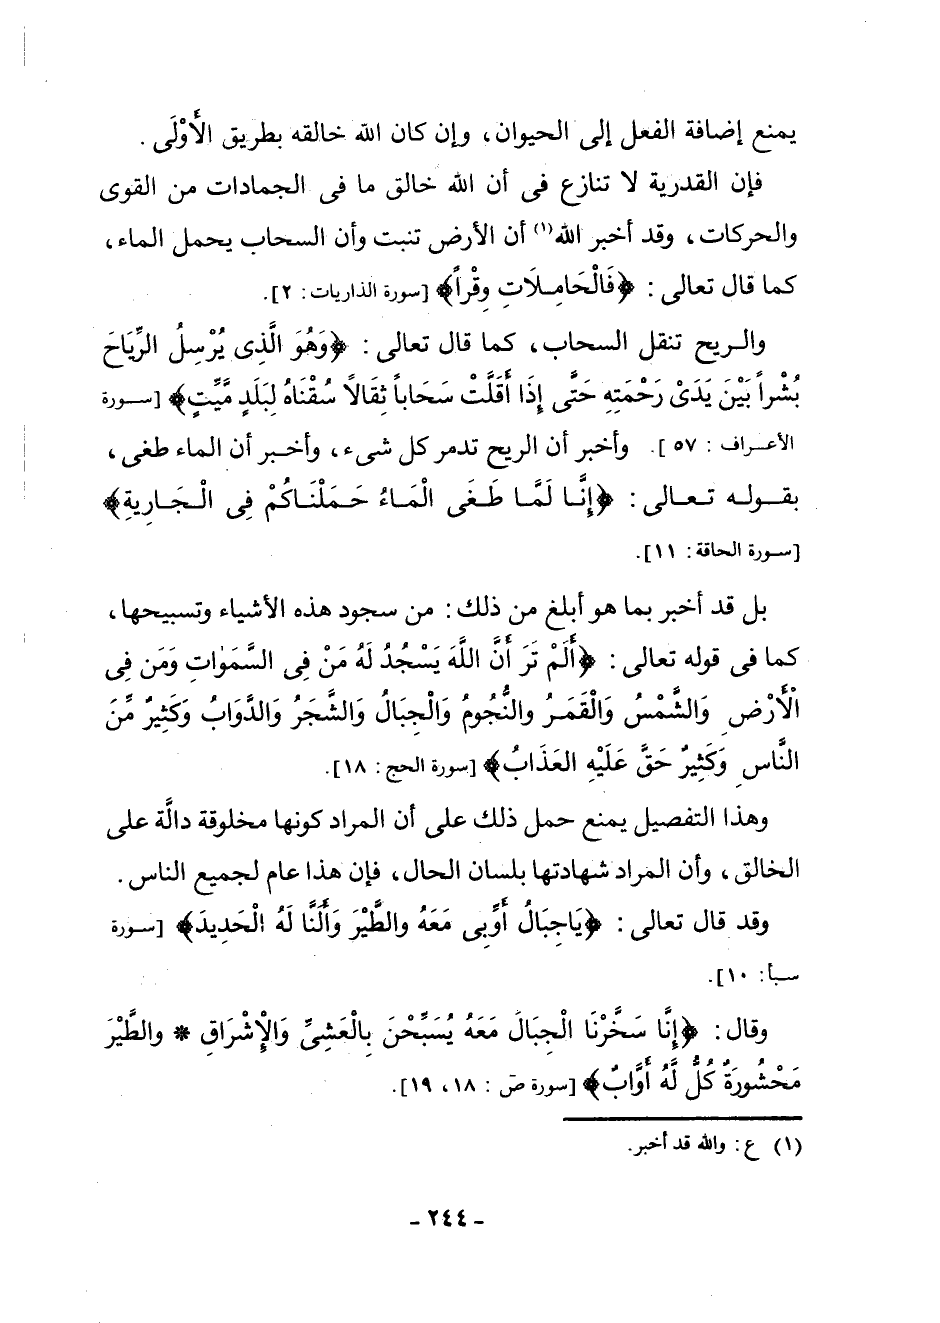 يمنع إضافة الفعل إلى الحيوان، وإن كان الله خالقه بطريق الأَوْلَى .
فإن القدرية لا تنازع فى أن الله خالق ما فى الجمادات من القوى
والحركات، وقد أخبر الله(١) أن الأرض تنبت وأن السحاب يحمل الماء،
كما قال تعالى: ﴿فَالْحَامِلَاتِ وِقْراً﴾ [سورة الذاريات: ٢].
والريح تنقل السحاب، كما قال تعالى: ﴿وَهُوَ الَّذِى يُرْسِلُ الرِّيَاحَ
بُشْراً بَيْنَ يَدَىْ رَحْمَتِهِ حَتَّى إِذَا أَقَلَّتْ سَحَاباً ثِقَالاً سُقْنَاهُ لِبَلَدٍ مَّيِّتٍ﴾ [سورة
الأعراف: ٥٧]. وأخبر أن الريح تدمر كل شىء، وأخبر أن الماء طغى،
بقوله تعالى: ﴿إِنَّا لَمَّا طَغَى الْمَاءُ حَمَلْنَاكُمْ فِى الْجَارِيةِ﴾
[سورة الحاقة: ١١].
بل قد أخبر بما هو أبلغ من ذلك: من سجود هذه الأشياء وتسبيحها،
كما فى قوله تعالى: ﴿أَلَمْ تَرَ أَنَّ اللَّهَ يَسْجُدُ لَهُ مَنْ فِى السَّمَوَاتِ وَمَن فِى
الْأَرْضِ وَالشَّمْسُ وَالْقَمَرُ والنُّجُومُ وَالْجِبَالُ وَالشَّجَرُ وَالدَّوَابُ وَكَثِيرٌ مِّنَ
النَّاسِ وَكَثِيرٌ حَقَّ عَلَيْهِ العَذَابُ﴾ [سورة الحج: ١٨].
وهذا التفصيل يمنع حمل ذلك على أن المراد كونها مخلوقة دالَّة على
الخالق، وأن المراد شهادتها بلسان الحال، فإن هذا عام لجميع الناس.
وقد قال تعالى: ﴿يَاجِبَالُ أَوِّبِى مَعَهُ والطَّيْرَ وَأَلَنَّا لَهُ الْحَدِيدَ﴾ [سورة
سبأ: ١٠].
وقال: ﴿إِنَّا سَخَّرْنَا الْجِبَالَ مَعَهُ يُسَبِّحْنَ بِالْعَشِىِّ وَالْإِشْرَاقِ * والطَّيْرَ
مَحْشُورَةً كُلٌّ لَّهُ أَوَّابٌ﴾ [سورة صَ: ١٨، ١٩].
(١) ع: والله قد أخبر.
- ٢٤٤ -